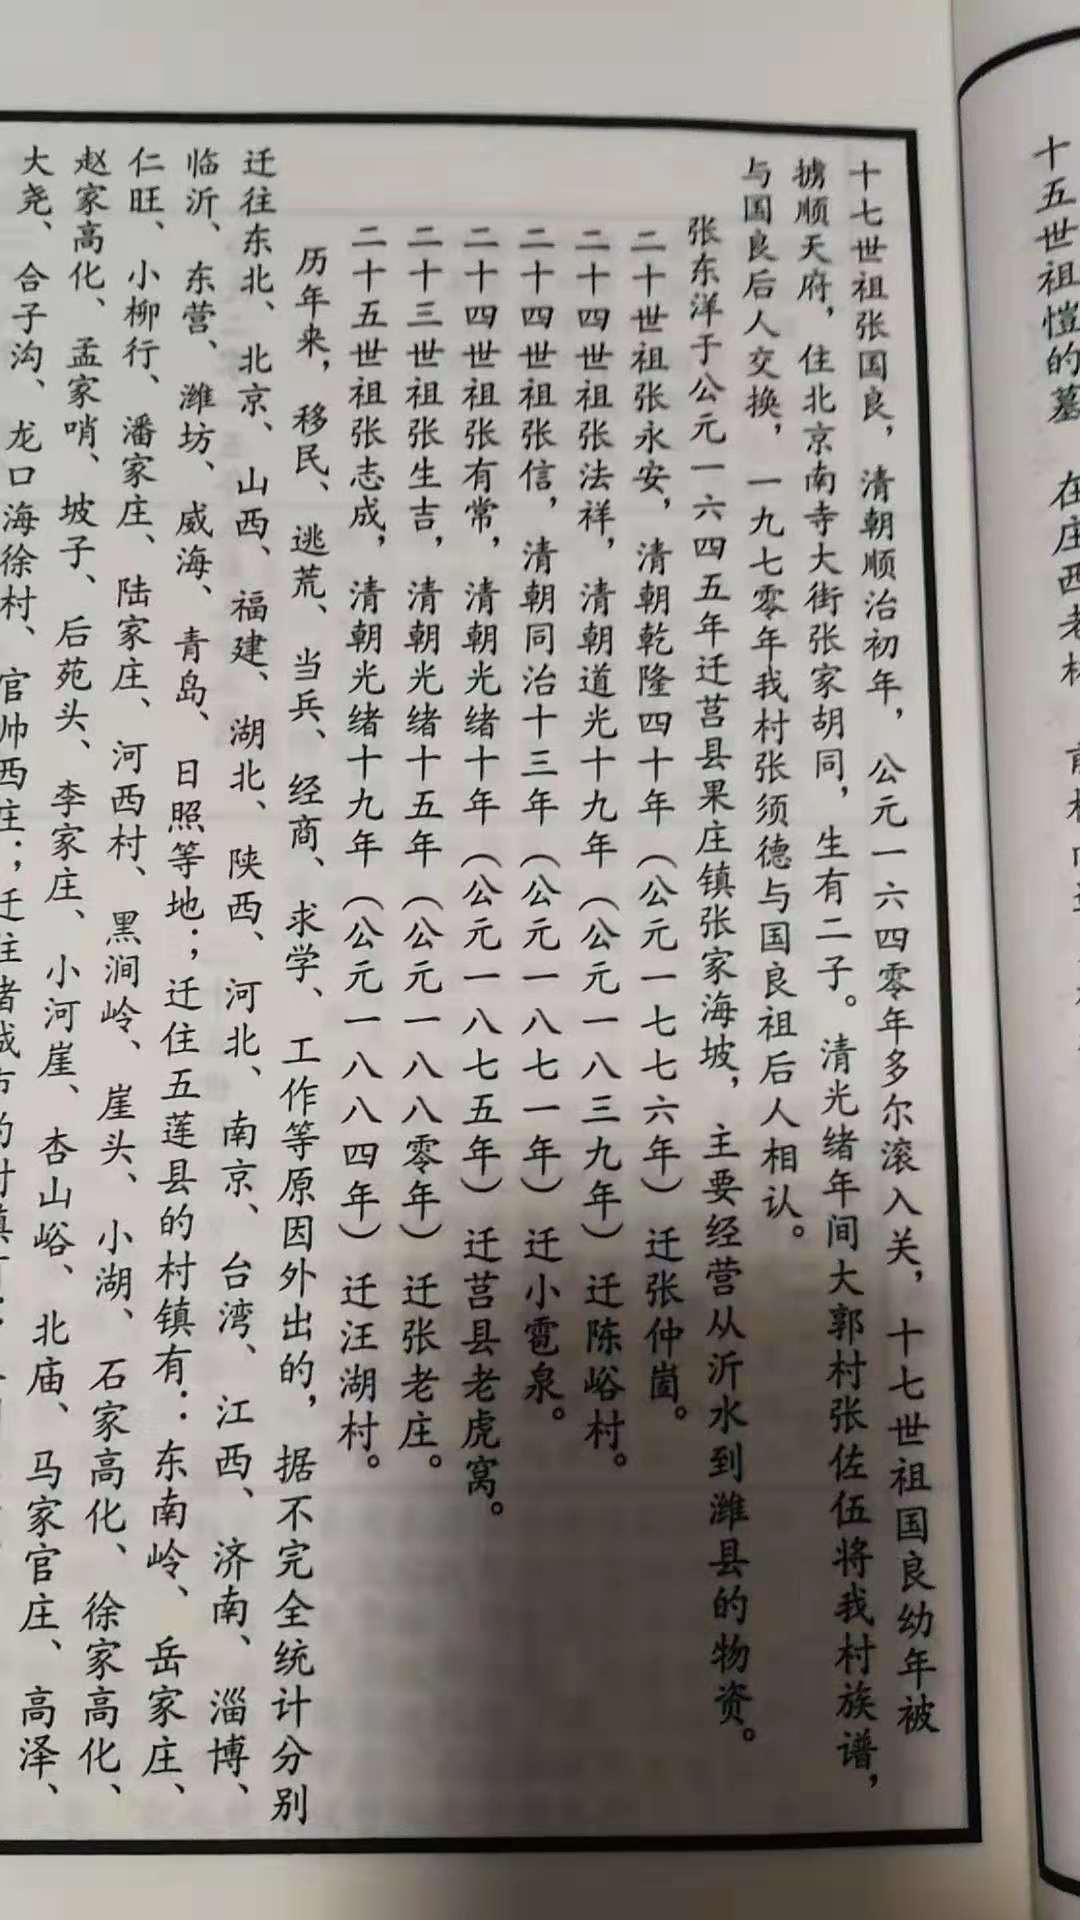 十五世祖愷的墓 在庄西老林
十七世祖张国良，清朝顺治初年，公元一六四零年多尔滚入关，十七世祖国良幼年被
掳顺天府，住北京南寺大街张家胡同，生有二子。清光绪年间大郭村张佐伍将我村族谱，
与国良后人交换，一九七零年我村张须德与国良祖后人相认。
张东洋于公元一六四五年迁莒县果庄镇张家海坡，主要经营从沂水到潍县的物资。
二十世祖张永安，清朝乾隆四十年（公元一七七六年）迁张仲崮。
二十四世祖张法祥，清朝道光十九年（公元一八三九年）迁陈峪村。
二十四世祖张信，清朝同治十三年（公元一八七一年）迁小雹泉。
二十四世祖张有常，清朝光绪十年（公元一八七五年）迁莒县老虎窝。
二十三世祖张生吉，清朝光绪十五年（公元一八八零年）迁张老庄。
二十五世祖张志成，清朝光绪十九年（公元一八八四年）迁汪湖村。
历年来，移民、逃荒、当兵、经商、求学、工作等原因外出的，据不完全统计分别
迁往东北、北京、山西、福建、湖北、陕西、河北、南京、台湾、江西、济南、淄博、
临沂、东营、潍坊、威海、青岛、日照等地；迁住五莲县的村镇有：东南岭、岳家庄、
仁旺、小柳行、潘家庄、陆家庄、河西村、黑涧岭、崖头、小湖、石家高化、徐家高化、
赵家高化、孟家哨、坡子、后苑头、李家庄、小河崖、杏山峪、北庙、马家官庄、高泽、
大尧、合子沟、龙口海徐村、官帅西庄；迁往诸城市的村镇有：